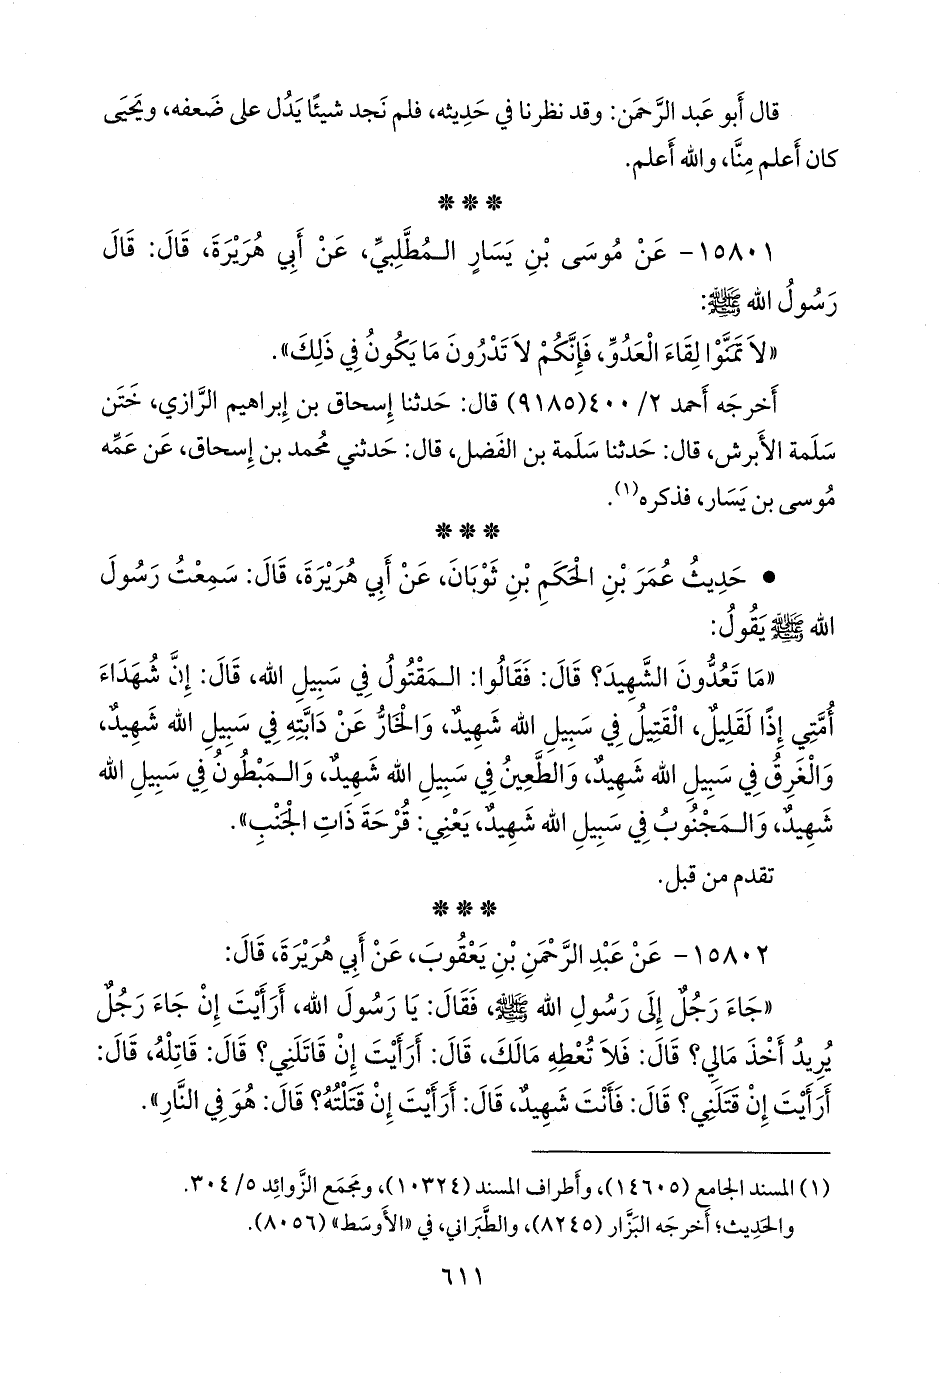 قال أَبو عَبد الرَّحمَن: وقد نظرنا في حَدِيثه، فلم نَجد شيئًا يَدُل على ضَعفه، ويَحيَى
كان أَعلم مِنَّا، والله أَعلم.
* * *
١٥٨٠١- عَنْ مُوسَى بْنِ يَسَارٍ الـمُطَّلِبيِّ، عَنْ أَبِي هُرَيْرَةَ، قَالَ: قَالَ
رَسُولُ الله ﷺ:
«لاَ تَمَنَّوْا لِقَاءَ الْعَدُوِّ، فَإِنَّكُمْ لاَ تَدْرُونَ مَا يَكُونُ فِي ذَلِكَ».
أَخرجَه أَحمد ٢/ ٤٠٠(٩١٨٥) قال: حَدثنا إِسحاق بن إِبراهيم الرَّازي، خَتَن
سَلَمة الأَبرش، قال: حَدثنا سَلَمة بن الفَضل، قال: حَدثني مُحمد بن إِسحاق، عَن عَمِّه
مُوسى بن يَسَار، فذكره(١).
* * *
• حَدِيثُ عُمَرَ بْنِ الْحَكَمِ بْنِ ثَوْبَانَ، عَنْ أَبِي هُرَيْرَةَ، قَالَ: سَمِعْتُ رَسُولَ
الله ﷺ يَقُولُ:
«مَا تَعُدُّونَ الشَّهِيدَ؟ قَالَ: فَقَالُوا: الـمَقْتُولُ فِي سَبِيلِ الله، قَالَ: إِنَّ شُهَدَاءَ
أُمَّتِي إِذًا لَقَلِيلٌ، الْقَتِيلُ فِي سَبِيلِ الله شَهِيدٌ، وَالْخَارُّ عَنْ دَابَّتِهِ فِي سَبِيلِ الله شَهِيدٌ،
وَالْغَرِقُ فِي سَبِيلِ الله شَهِيدٌ، وَالطَّعِينُ فِي سَبِيلِ الله شَهِيدٌ، وَالـمَبْطُونُ فِي سَبِيلِ الله
شَهِيدٌ، وَالـمَجْنُوبُ فِي سَبِيلِ الله شَهِيدٌ، يَعْنِي: قُرْحَةَ ذَاتِ الْجَنْبِ».
تقدم من قبل.
* * *
١٥٨٠٢- عَنْ عَبْدِ الرَّحْمَنِ بْنِ يَعْقُوبَ، عَنْ أَبِي هُرَيْرَةَ، قَالَ:
«جَاءَ رَجُلٌ إِلَى رَسُولِ الله ﷺ، فَقَالَ: يَا رَسُولَ الله، أَرَأَيْتَ إِنْ جَاءَ رَجُلٌ
يُرِيدُ أَخْذَ مَالِي؟ قَالَ: فَلاَ تُعْطِهِ مَالَكَ، قَالَ: أَرَأَيْتَ إِنْ قَاتَلَنِي؟ قَالَ: قَاتِلْهُ، قَالَ:
أَرَأَيْتَ إِنْ قَتَلَنِي؟ قَالَ: فَأَنْتَ شَهِيدٌ، قَالَ: أَرَأَيْتَ إِنْ قَتَلْتُهُ؟ قَالَ: هُوَ فِي النَّارِ».
(١) المسند الجامع (١٤٦٠٥)، وأَطراف المسند (١٠٣٢٤)، ومَجمَع الزَّوائِد ٥/ ٣٠٤.
والحَدِيث؛ أَخرجَه البَزَّار (٨٢٤٥)، والطَّبَراني، في «الأَوسَط» (٨٠٥٦).
٦١١